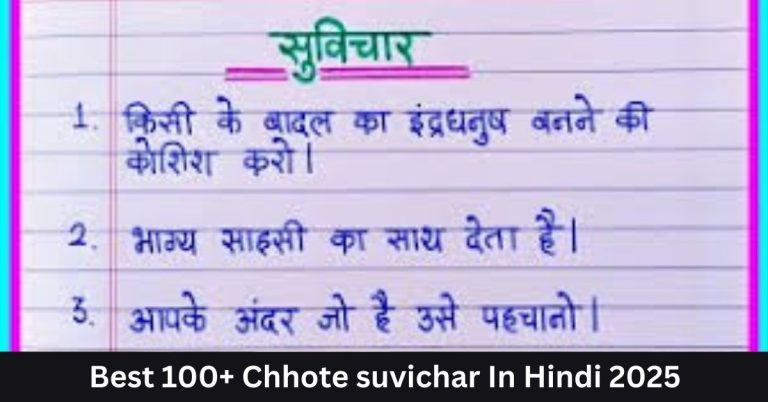 सुविचार
1. किसी के बादल का इंद्रधनुष बनने की
कोशिश करो।
2. भाग्य साहसी का साथ देता है।
3. आपके अंदर जो है उसे पहचानो।
Best 100+ Chhote suvichar In Hindi 2025